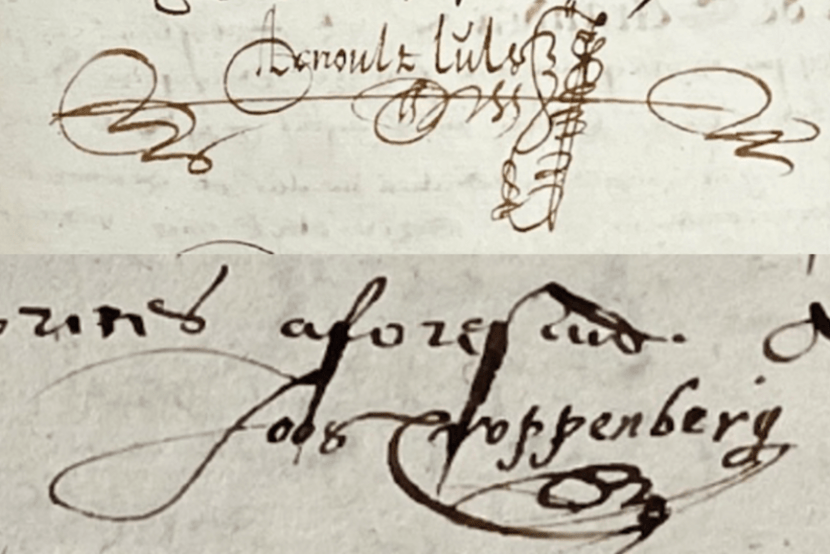 Arnoult Lulss
aforesaid.
Joos Croppenberg